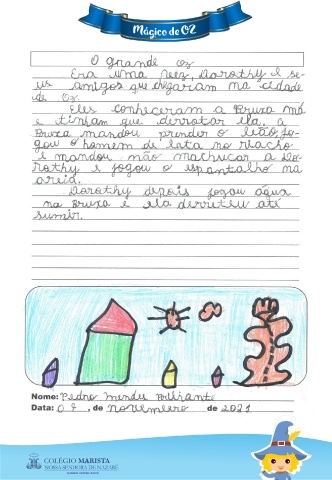 Mágico de OZ
O grande Oz
Era uma vez, Dorothy e se-
us amigos que chegaram na cidade
de Oz.
Eles conheceram a Bruxa má
e tinham que derrotar ela, a
Bruxa mandou prender o leão, jo-
gou o homem de lata no riacho
e mandou não machucar a Do-
rothy e jogou o espantalho na
areia.
Dorothy depois jogou água
na Bruxa e ela derreteu até
sumir.
Nome: Pedro Mendes
Data: 07, de novembro de 2021
COLÉGIO MARISTA
NOSSA SENHORA DE NAZARÉ